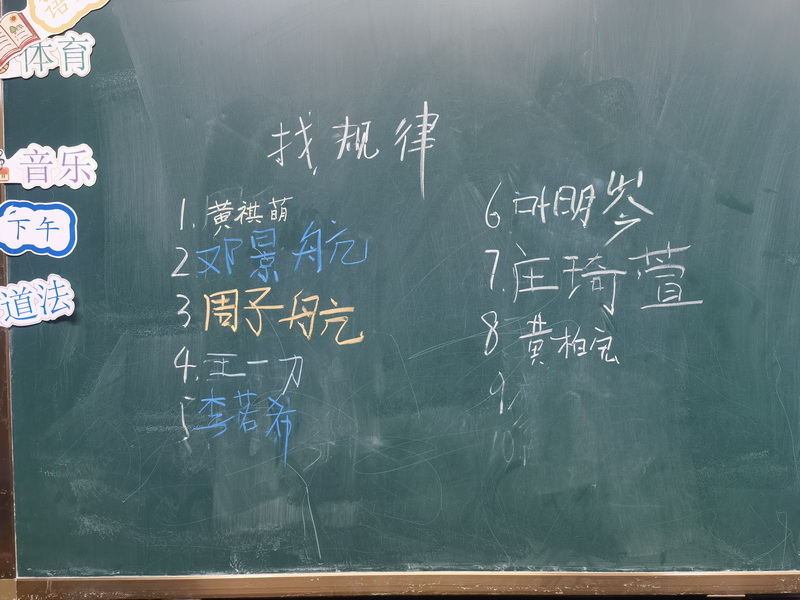 语
体育
音乐
下午
道法
找规律
1.黄祺萌
2邓景航
3周子航
4.王一力
5李若希
6叶明岑
7.庄琦萱
8黄柏宛
9
10